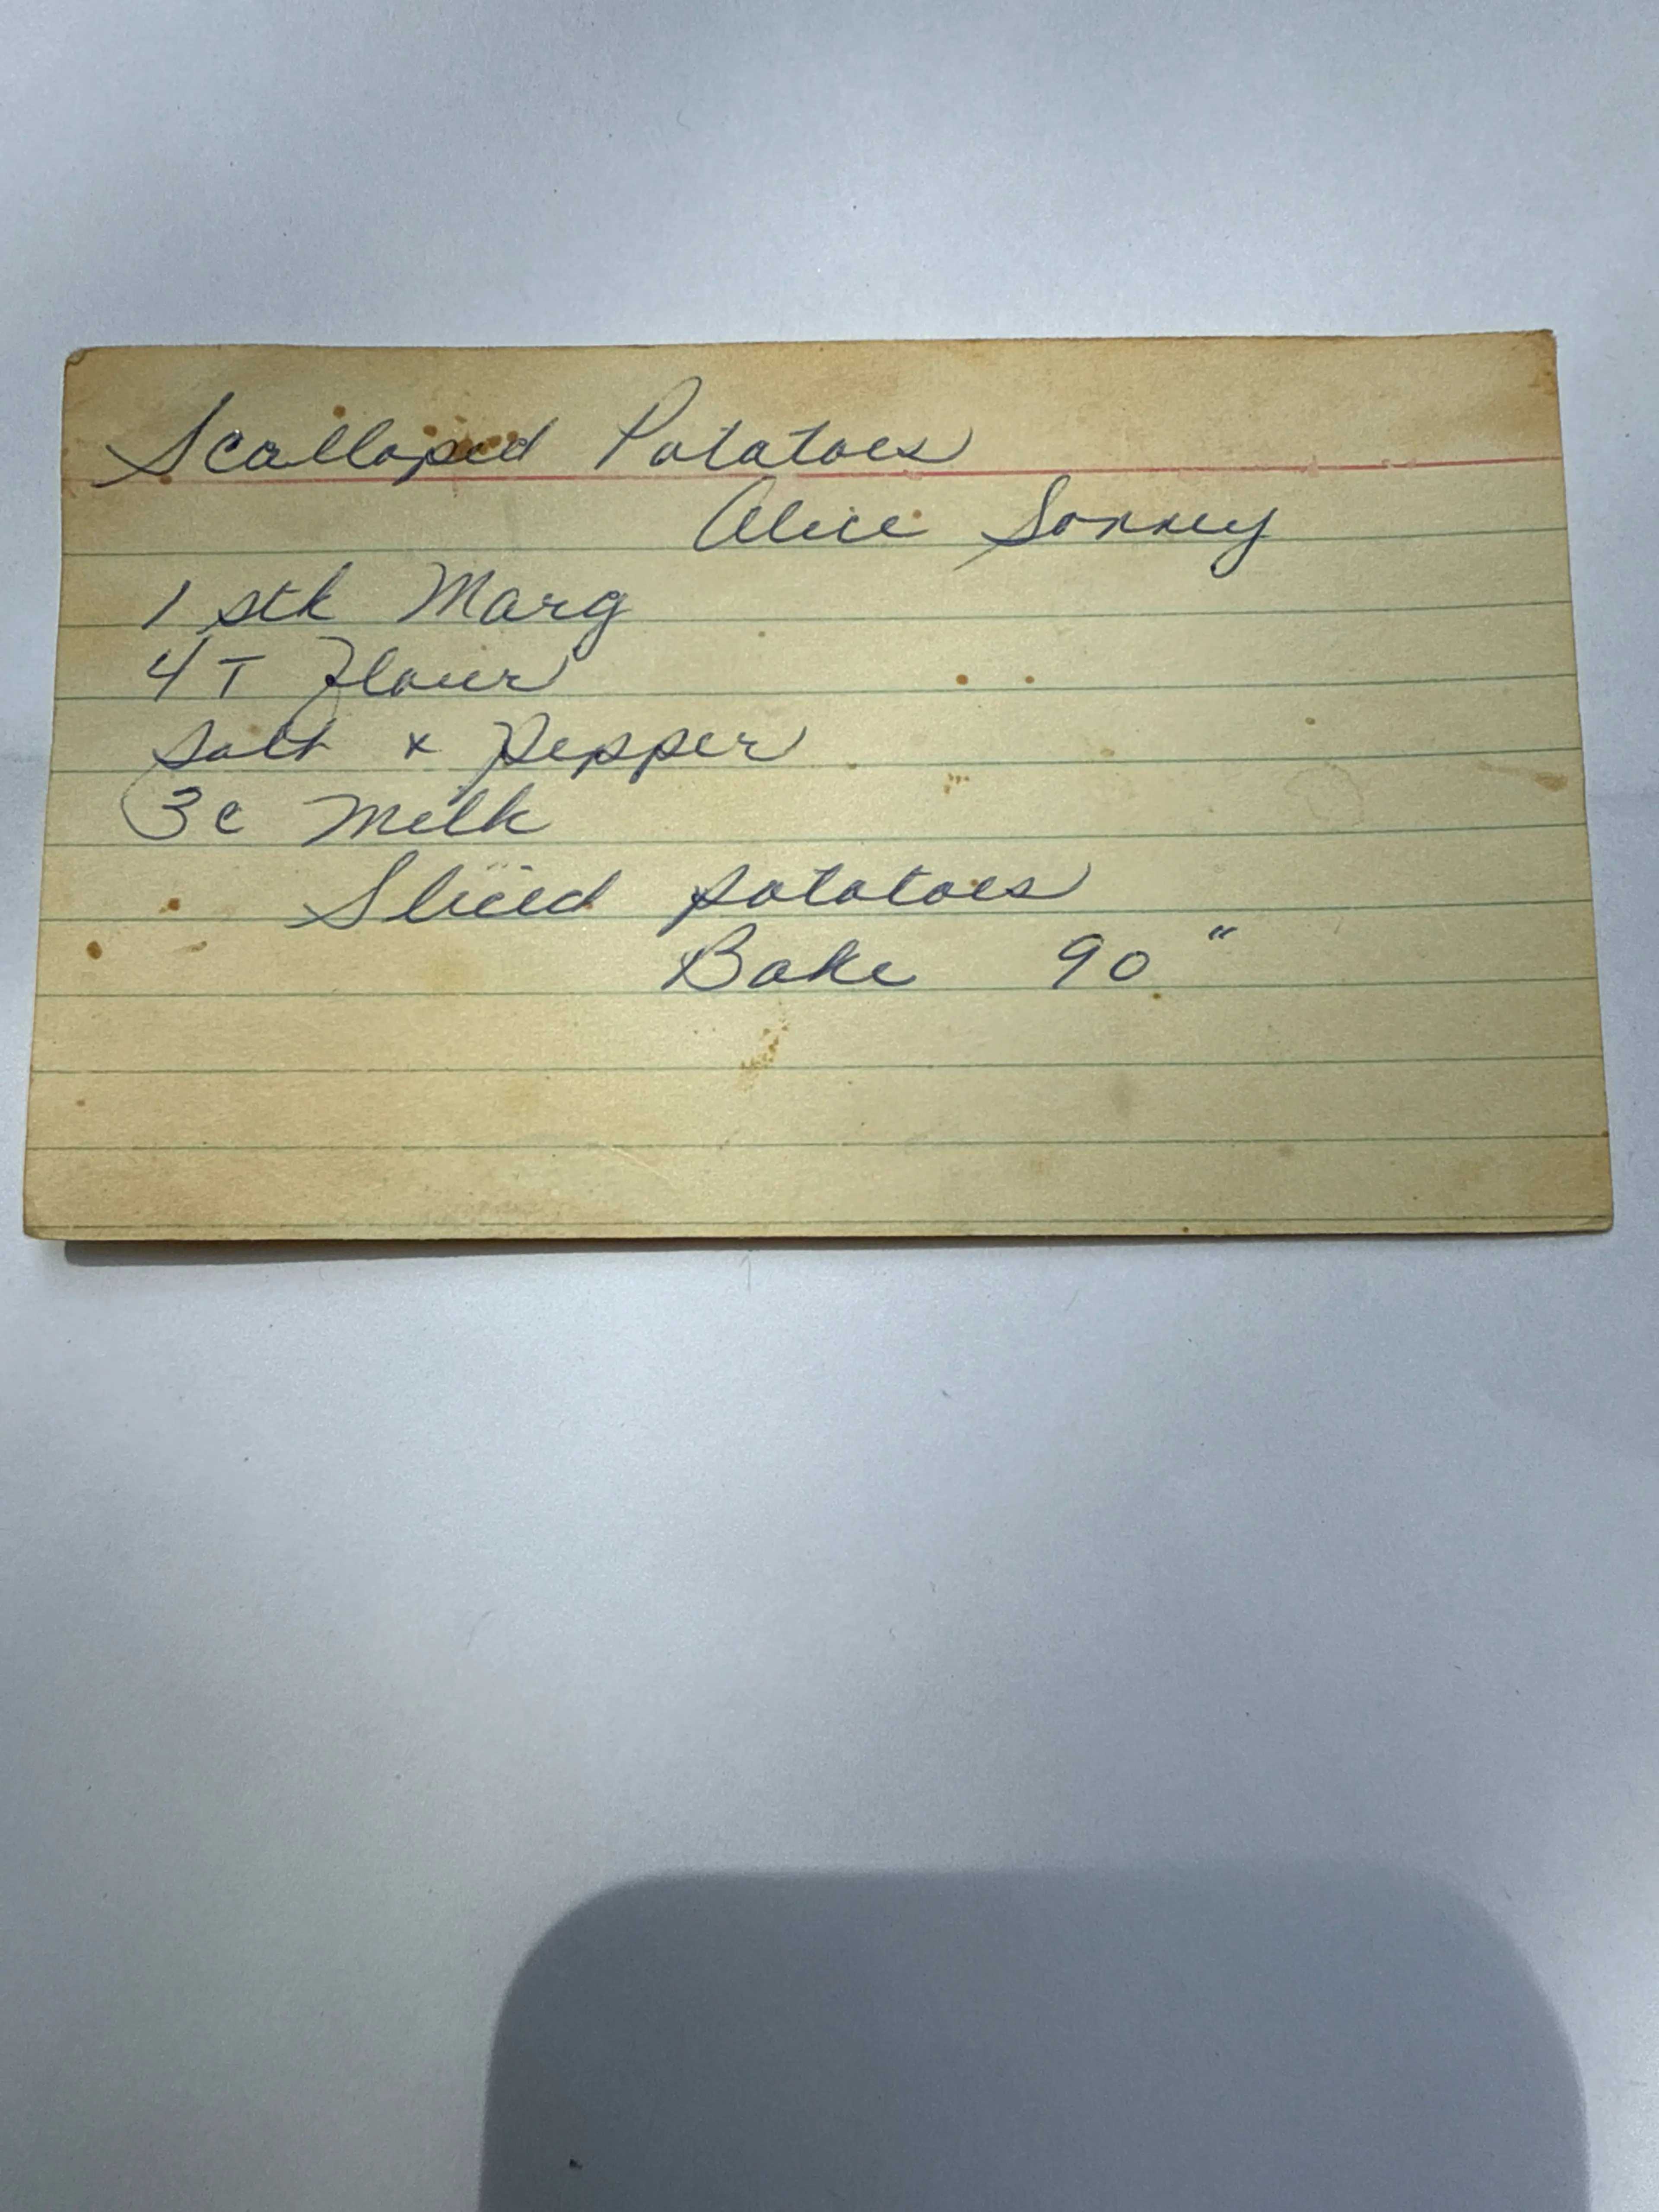 Scalloped Potatoes
Alice Sonney
1 stk Marg
4 T Flour
Salt & Pepper
3 c Milk
Sliced potatoes
Bake 90"